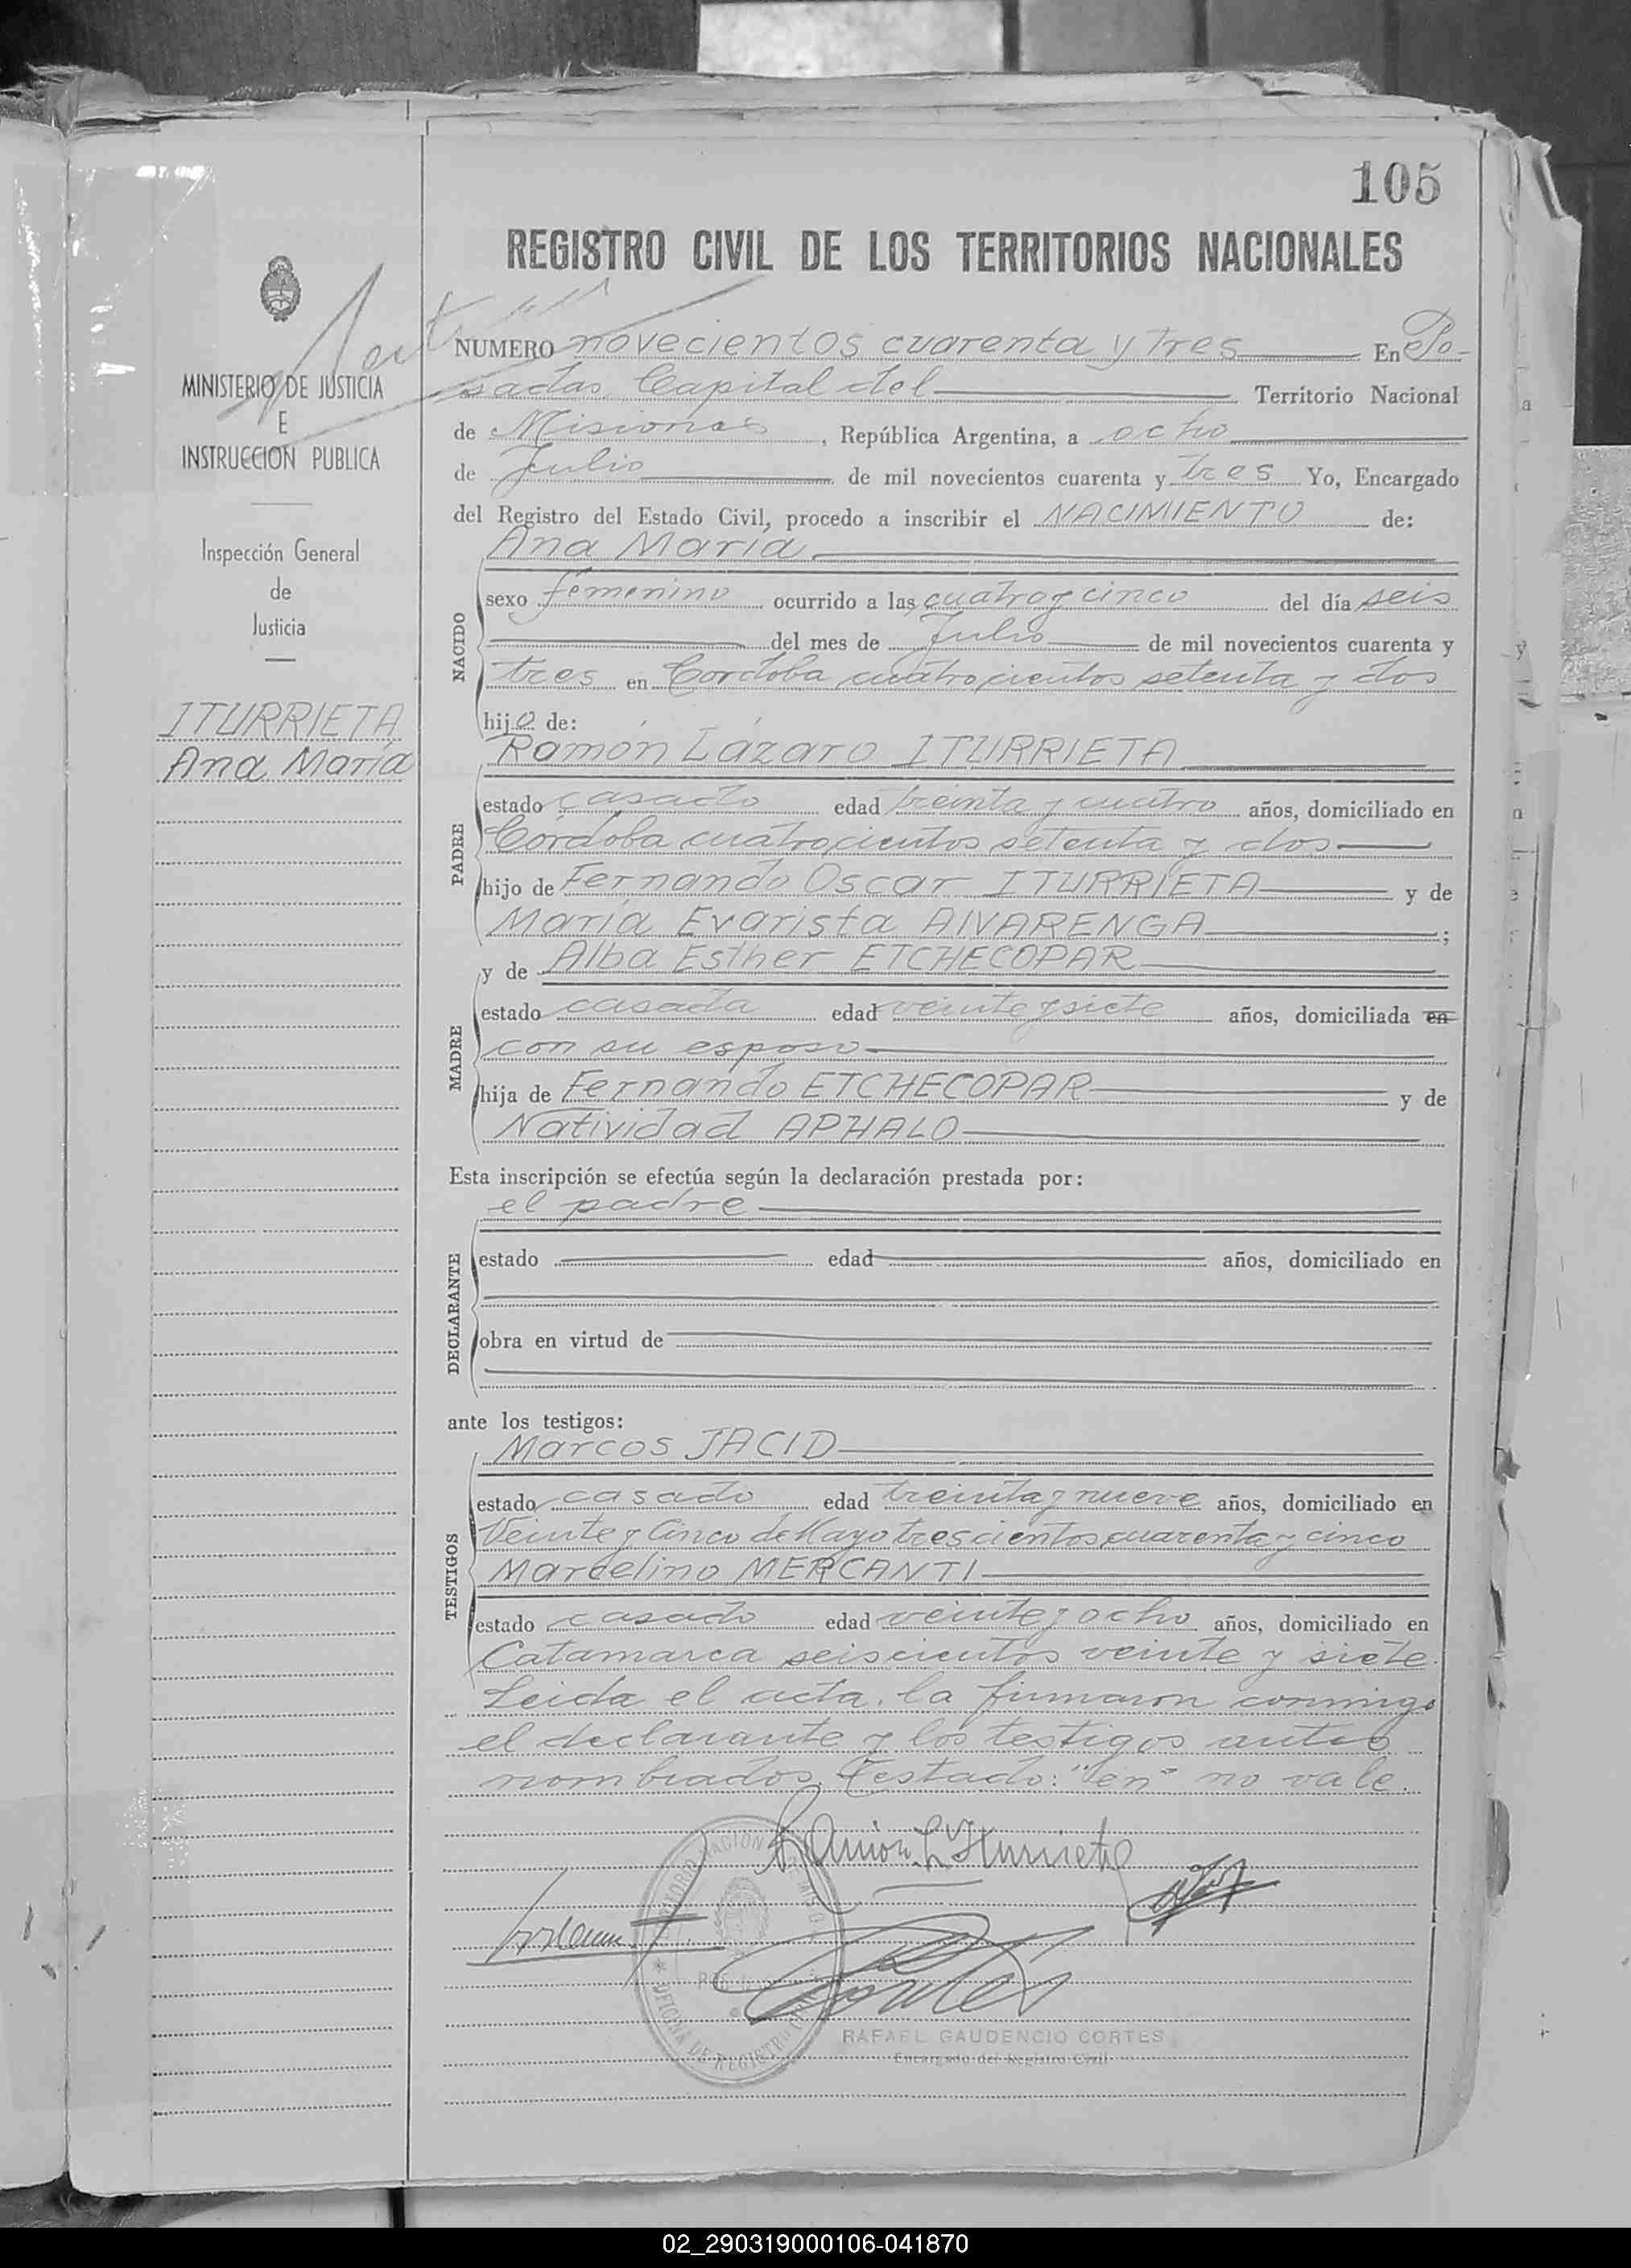 105
REGISTRO CIVIL DE LOS TERRITORIOS NACIONALES
MINISTERIO DE JUSTICIA
E
INSTRUCCION PUBLICA
Inspección General
de
Justicia
ITURRIETA
Ana María
NUMERO novecientos cuarenta y tres En Po-
sadas Capital del Territorio Nacional
de Misiones, República Argentina, a ocho
de Julio de mil novecientos cuarenta y tres Yo, Encargado
del Registro del Estado Civil, procedo a inscribir el NACIMIENTO de:
NACIDO
Ana María
sexo femenino ocurrido a las cuatro y cinco del día seis
del mes de Julio de mil novecientos cuarenta y
tres en Cordoba cuatrocientos setenta y dos
hija de:
PADRE
Ramón Lázaro ITURRIETA
estado casado edad treinta y cuatro años, domiciliado en
Córdoba cuatrocientos setenta y dos
hijo de Fernando Oscar ITURRIETA y de
María Evarista ALVARENGA;
MADRE
y de Alba Esther ETCHECOPAR
estado casada edad veinte y siete años, domiciliada en
con su esposo
hija de Fernando ETCHECOPAR y de
Natividad APHALO
Esta inscripción se efectúa según la declaración prestada por:
el padre
DECLARANTE
estado edad años, domiciliado en
obra en virtud de
ante los testigos:
TESTIGOS
Marcos JACID
estado casado edad treinta y nueve años, domiciliado en
Veinte y Cinco de Mayo trescientos cuarenta y cinco
Marcelino MERCANTI
estado casado edad veinte y ocho años, domiciliado en
Catamarca seiscientos veinte y siete.
Leida el acta, la firmaron conmigo
el declarante y los testigos antes
nombrados. Testado: "en" no vale.
Ramón L. Iturrieta
Cortes
OFICINA DE REGISTRO CIVIL
RAFAEL GAUDENCIO CORTES
Encargado del Registro Civil
02_290319000106-041870